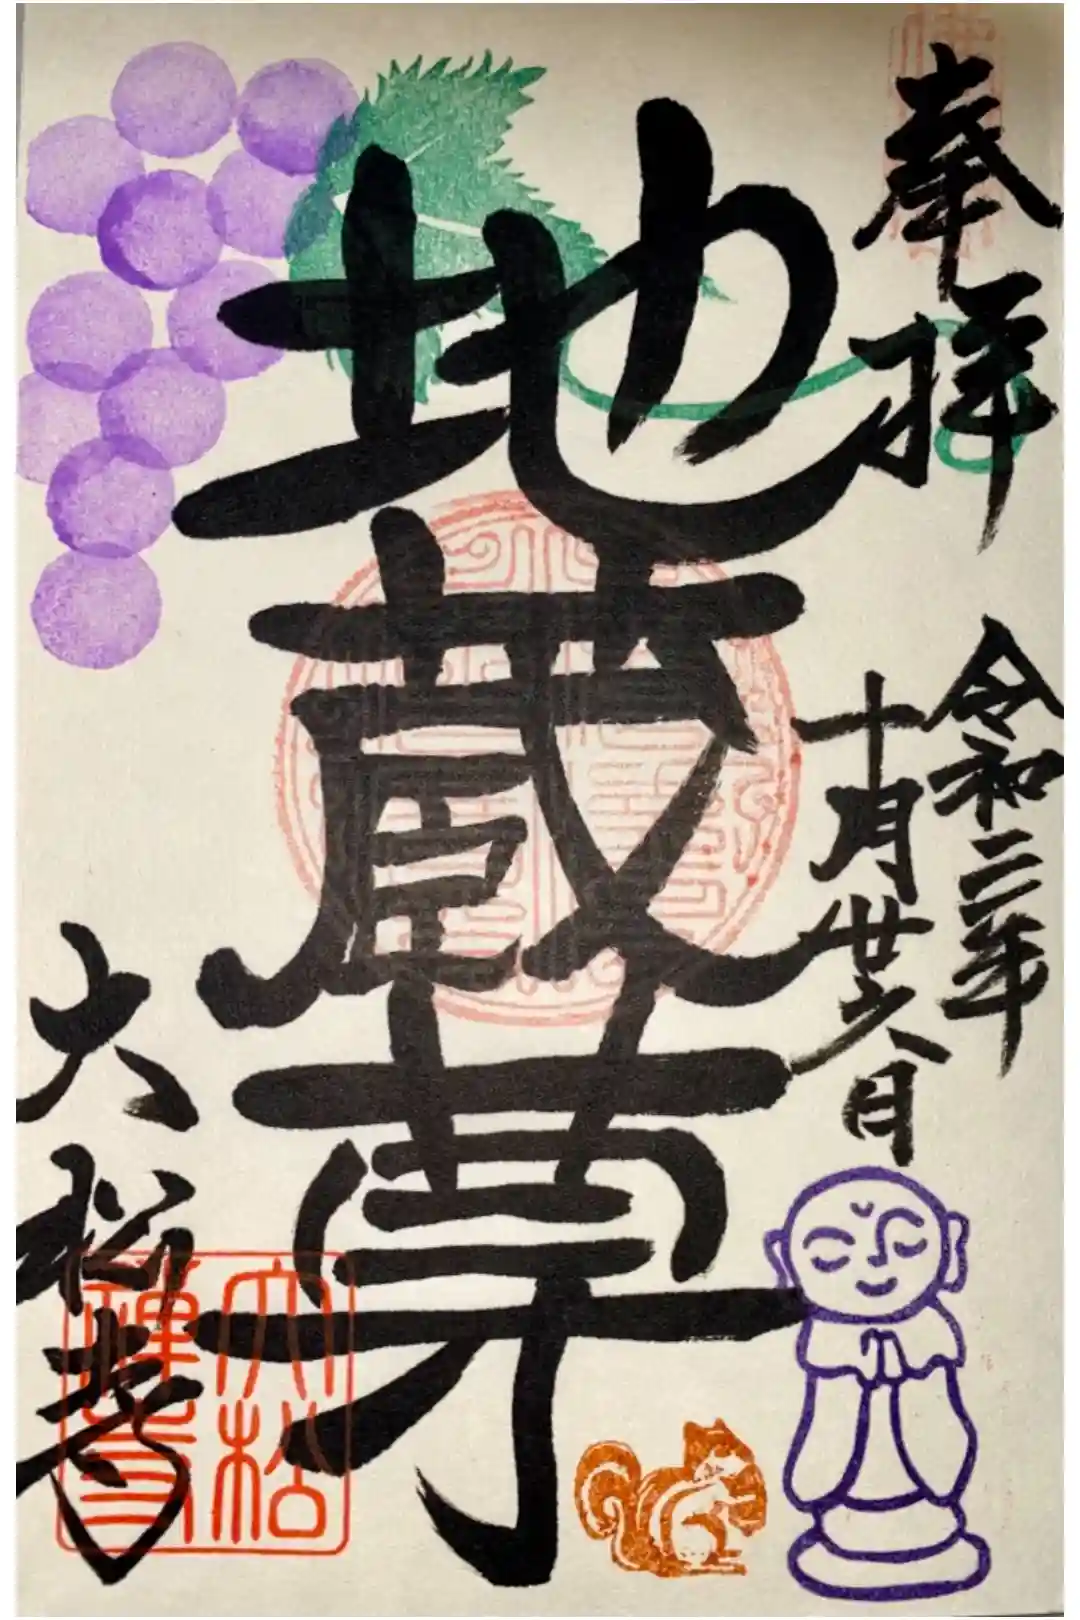 奉拝
令和二年
十月廿六日
地蔵尊
大松寺
大松